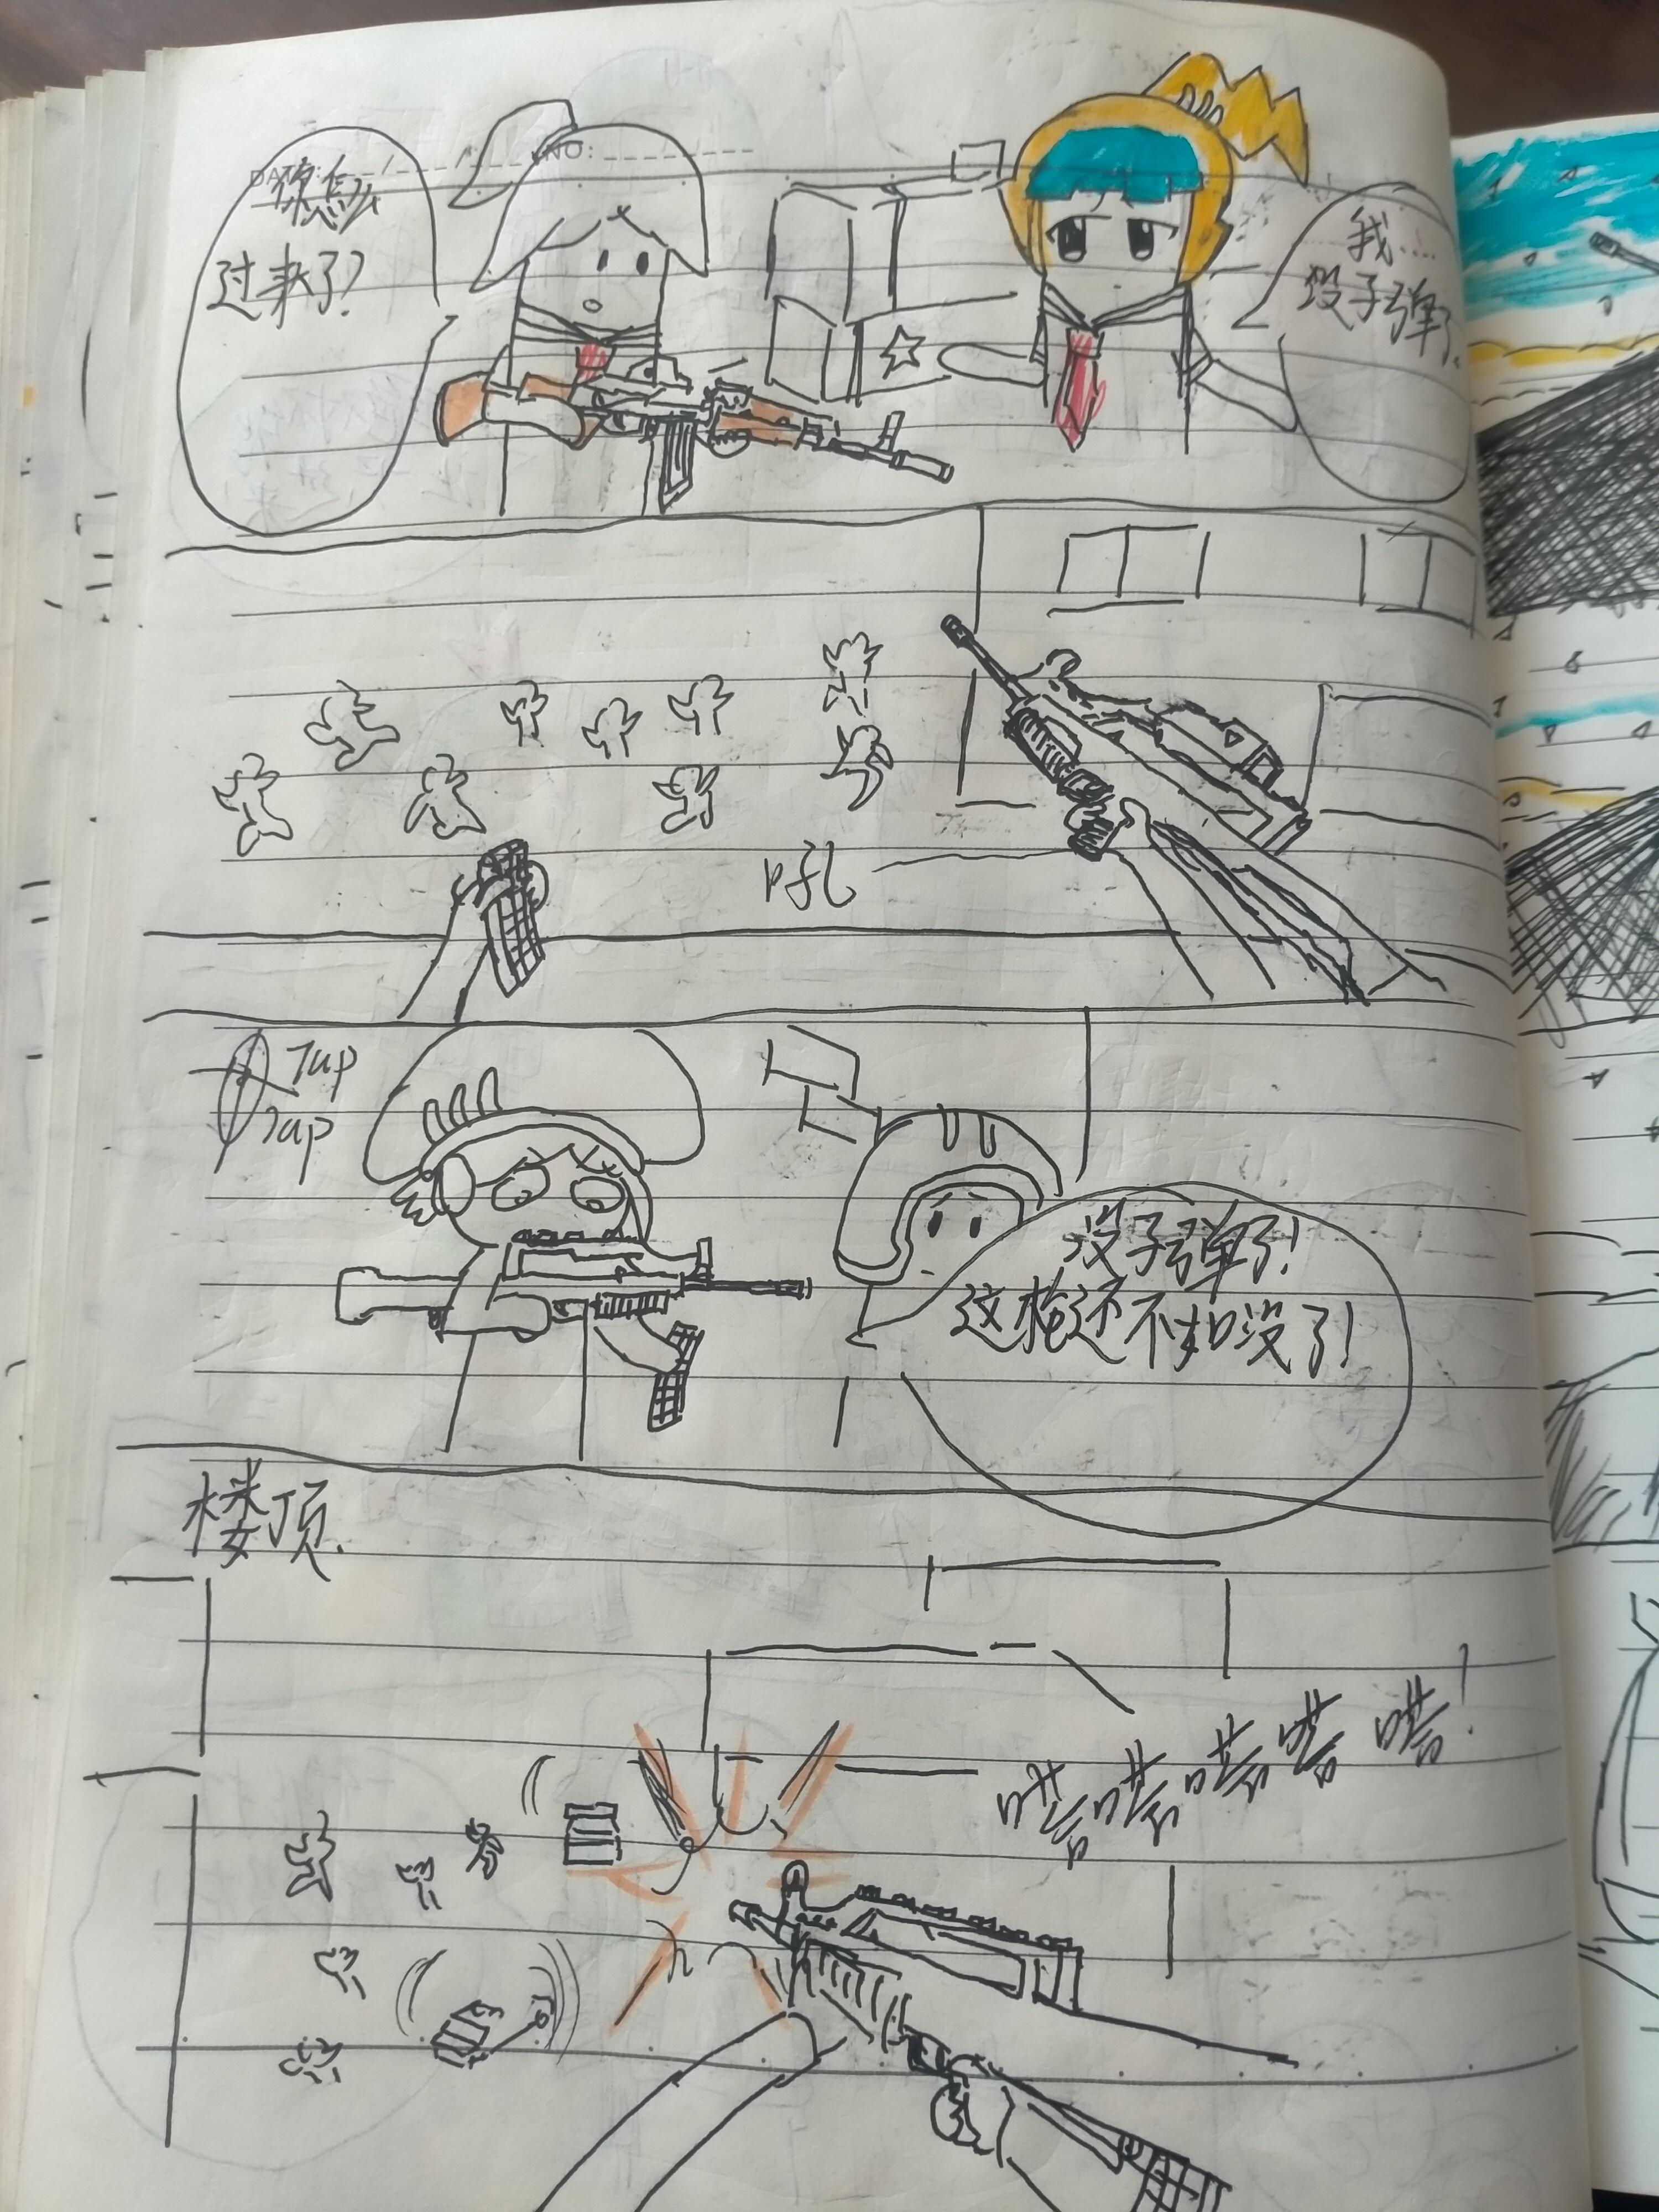 你怎么
过来了?
我....
没子弹了.
NO:
吼
Tap
Tap
没子弹了!
这枪还不如没了!
楼顶.
嗒嗒嗒嗒嗒!